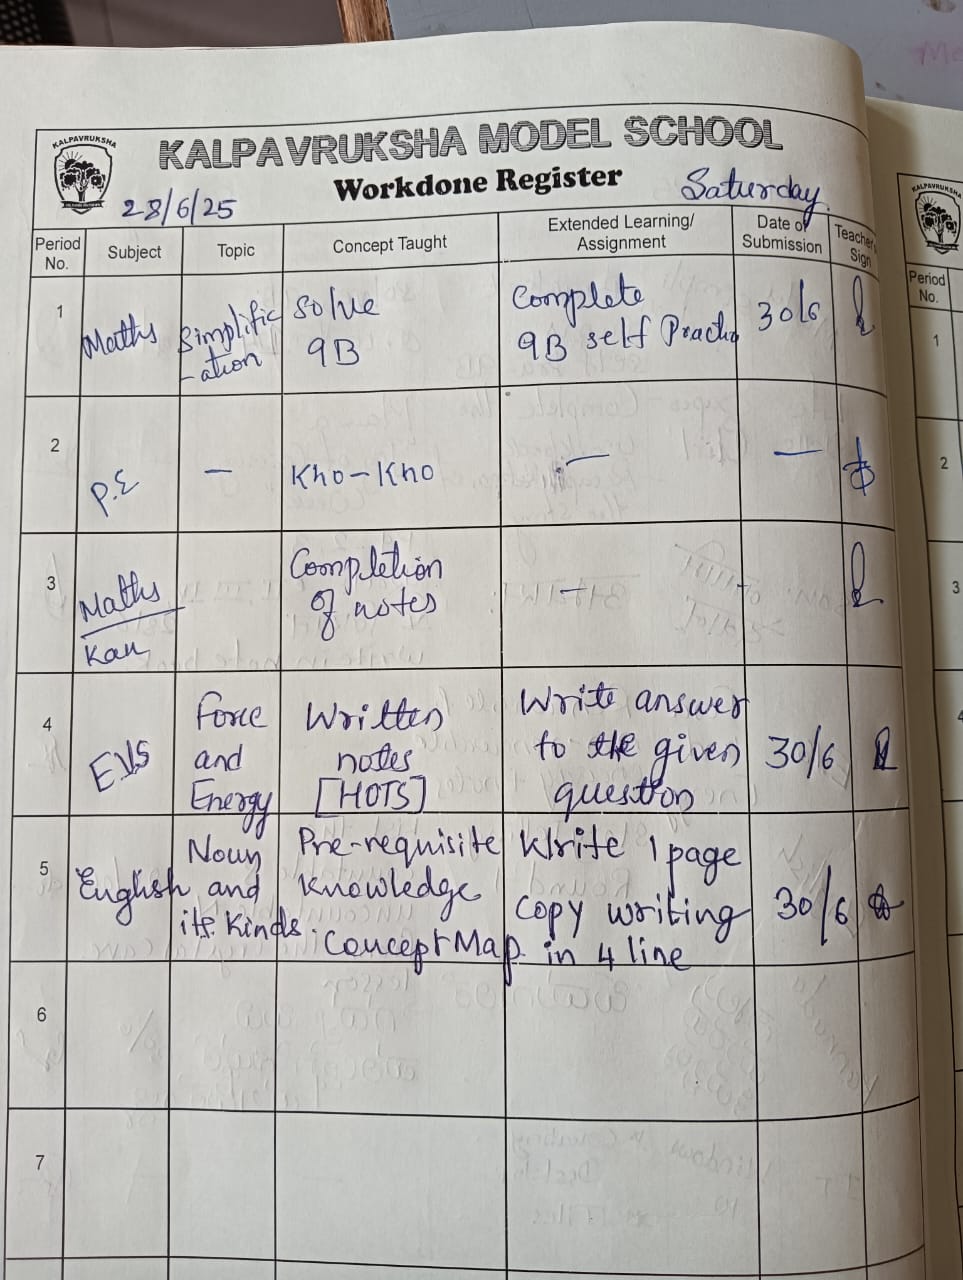 KALPAVRUKSHA
KALPAVRUKSHA MODEL SCHOOL
Workdone Register
28/6/25
Saturday
Period No. Subject Topic Concept Taught Extended Learning/ Assignment Date of Submission Teacher's Sign
1 Maths Simplific-ation Solve 9B Complete 9B self 30/6
2 P.E — Kho-Kho — —
3 Maths/Kan Completion of notes —
4 EVS Force and Energy Written notes [HOTS] Write answer to the given question 30/6
5 English Noun and its Kinds. Pre-requisite Knowledge Concept Map Write 1 page copy writing in 4 line 30/6
6
7
KALPAVRUKSHA
Period No.
1
2
3
4